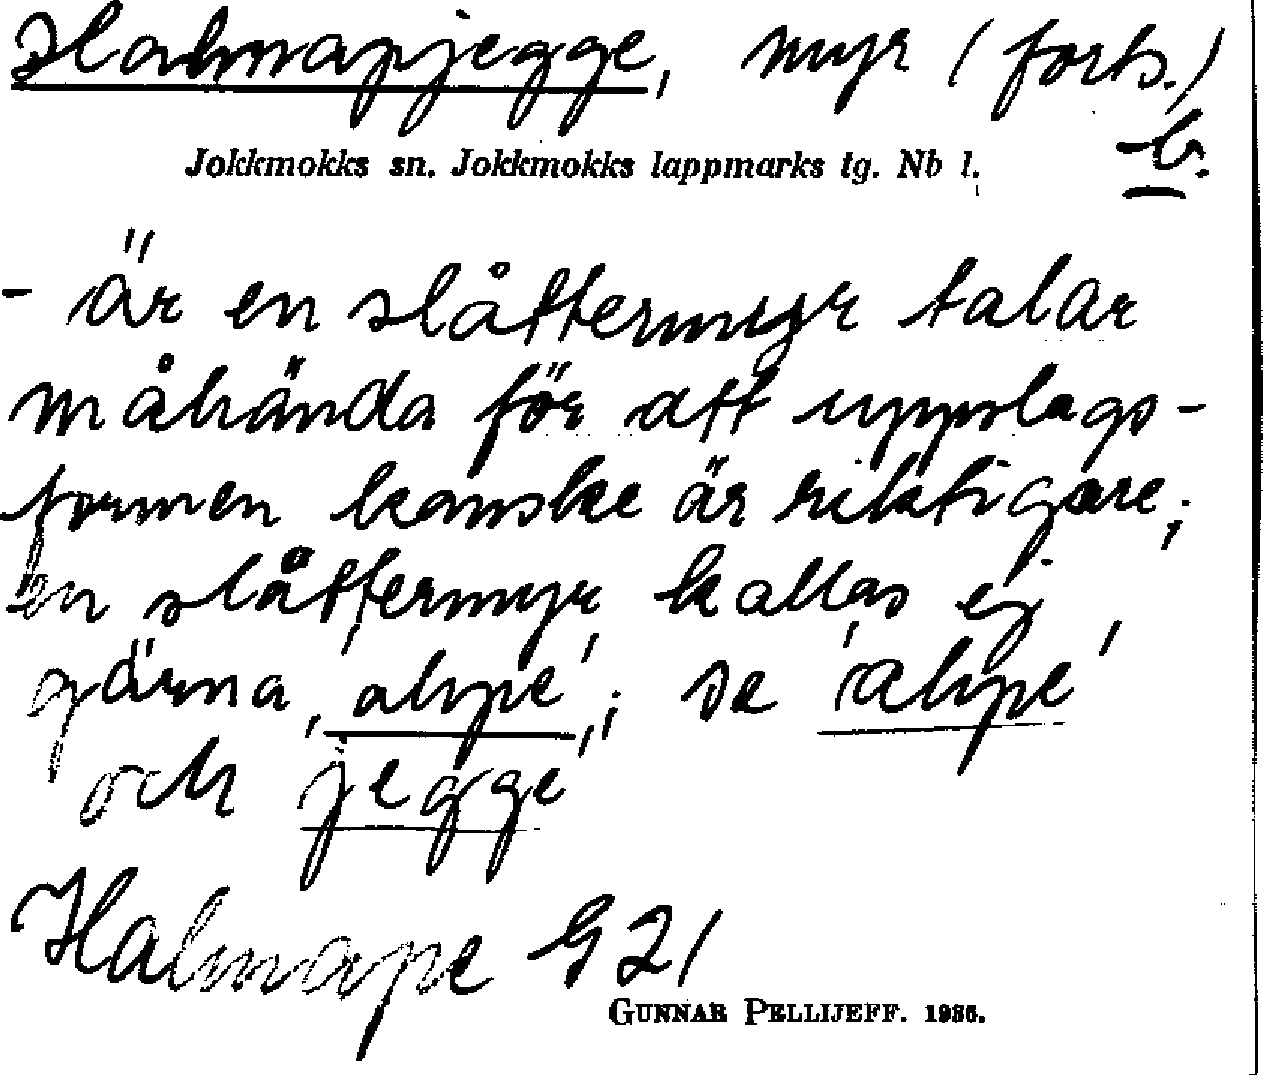 Halmapjegge, myr (forts.)
b.
Jokkmokks sn. Jokkmokks lappmarks tg. Nb l.
- är en slåttermyr talar
måhända för att uppslags-
formen kanske är riktigare;
en slåttermyr kallas ej
gärna ‚ahpe‚; se 'ahpe'
och jegge
Halmape G 21
GUNNAR PELLIJEFF. 1936.